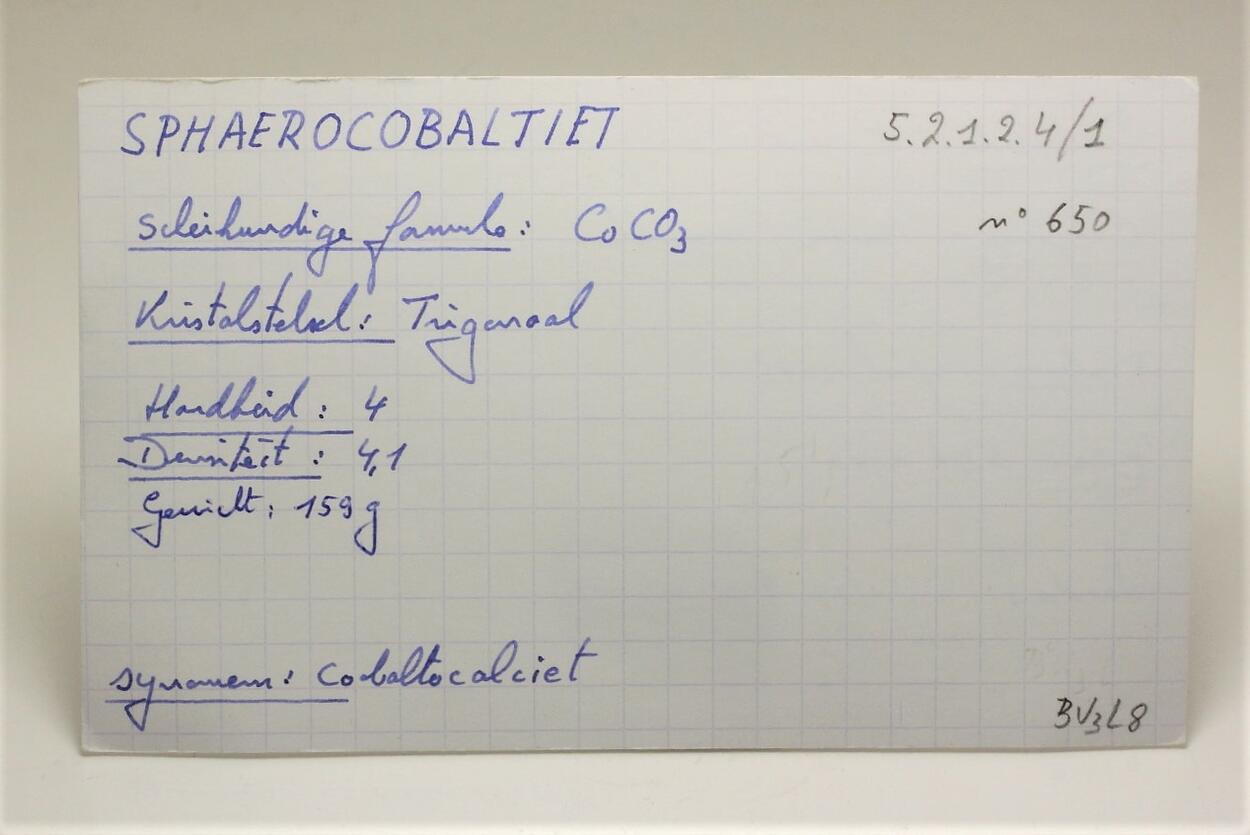 SPHAEROCOBALTIET
5.2.1.2.4/1
Scheikundige formule: CoCO3
n° 650
Kristalstelsel: Trigonaal
Hardheid: 4
Densiteit: 4,1
Gewicht: 159 g
synoniem: Cobaltocalciet
BV3L8